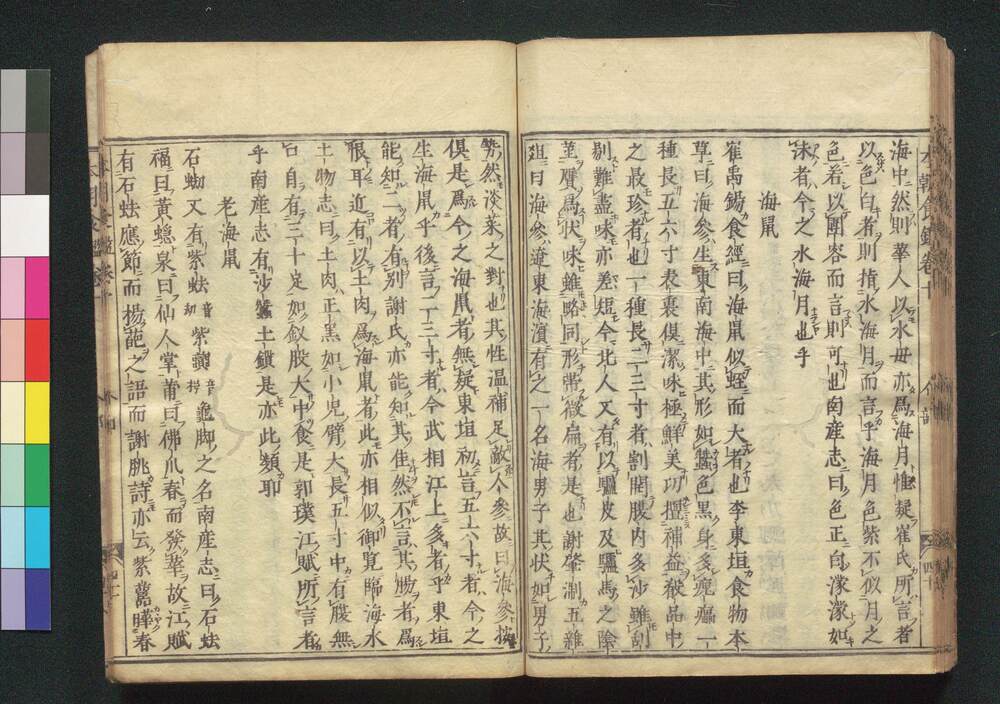 海中然則華人以水母亦爲海月惟疑崔氏所言者
以色白者則指水海月而言乎海月色紫不似月之
色若以團容而言則可也南産志曰色正白濛濛如
沫者今之水海月也乎
海鼠
崔禹錫食經曰海鼠似蛭而大者也李東垣食物本
草曰海參生東南海中其形如蠶色黒身多瘣癗一
種長五六寸表裏倶潔味極鮮美功擅補益殽品中
之最珍者也一種長二三寸者割開腹内多沙雖刮
剔難盡味亦差短今北人又有以驢皮及驢馬之陰
莖贋爲状味雖略同形帶微扁者是也謝肇淛五雜
俎曰海參遼東海濱有之一名海男子其状如男子
勢然淡菜之對也其性温補足敵人參故曰海參按
倶是爲今之海鼠者無疑東垣初言五六寸者今之
生海鼠乎後言二三寸者今武相江上多者乎東垣
能知二者有別謝氏亦能知其佳然不言其腸者爲
恨耳近有以土肉爲海鼠者此亦相似御覧臨海水
土物志曰土肉正黒如小兒臂大長五寸中有腹無
口自有三十足如釵股大中食是郭璞江賦所言者
乎南産志有沙蠶土鑚是亦此類耶
老海鼠
石蜐又有紫蚨音劫紫䖴音枵龜脚之名南産志曰石蚨
福曰黄螅泉曰仙人掌莆曰佛爪春而發華故江賦
有石蚨應節而揚葩之語而謝朓詩亦云紫蘬曄春